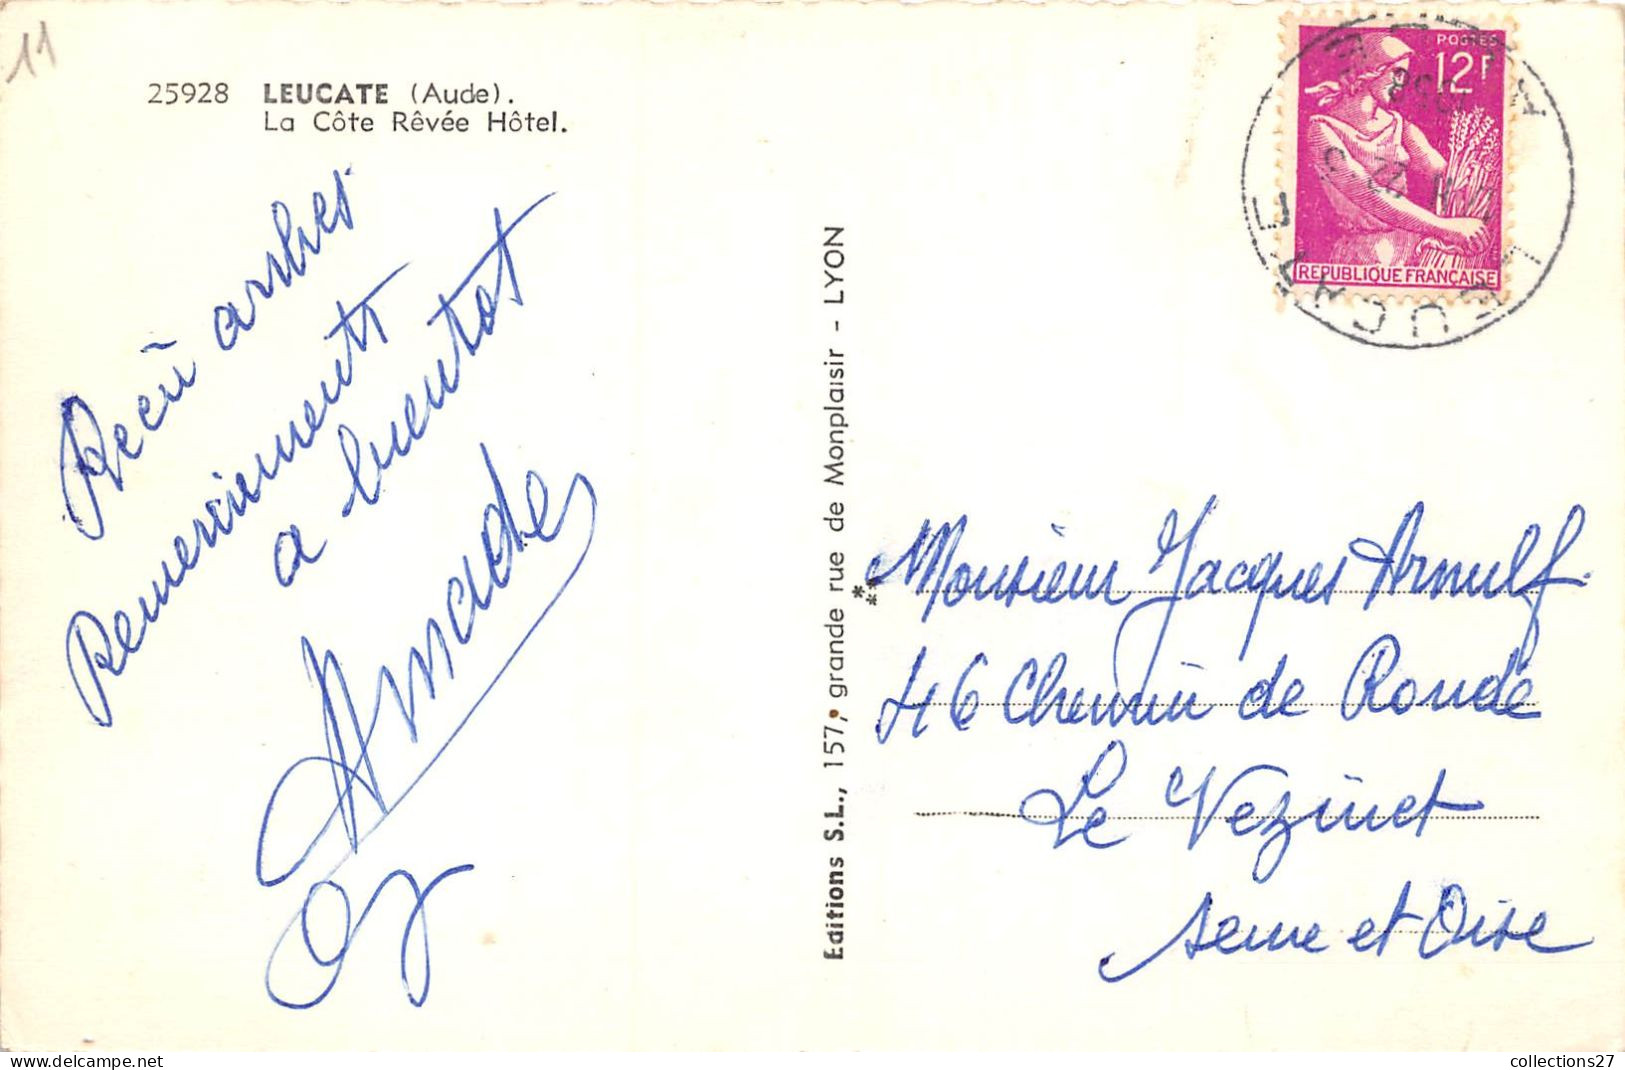 11
25928 LEUCATE (Aude).
La Côte Rêvée Hôtel.
Recu arrhes
Remerciements
a bientot
Editions S.L., 157, grande rue de Monplaisir - LYON
POSTES
12F
REPUBLIQUE FRANÇAISE
LEUCATE
1958
Monsieur Jacques Arnulf
46 Chemin de Ronde
Le Vezinet
seine et Oise
collections27